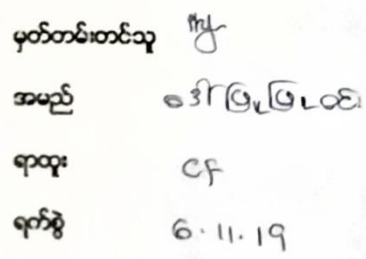 မှတ်တမ်းတင်သူ
အမည် ဒေါ်ဖြူဖြူဝင်း
ရာထူး CF
ရက်စွဲ 6.11.19